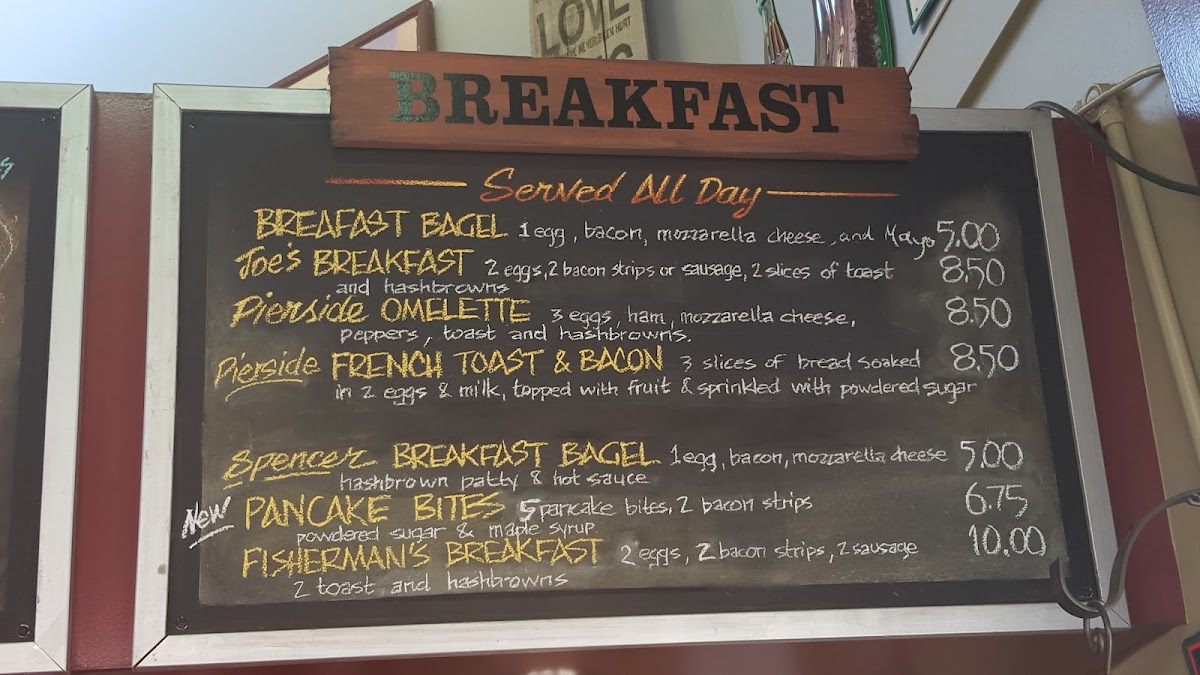 LOVE
BREAKFAST
Served All Day
BREAFAST BAGEL 1 egg, bacon, mozzarella cheese, and Mayo 5.00
Joe's BREAKFAST 2 eggs, 2 bacon strips or sausage, 2 slices of toast 8.50
and hashbrowns
Pierside OMELETTE 3 eggs, ham, mozzarella cheese, 8.50
peppers, toast and hashbrowns.
Pierside FRENCH TOAST & BACON 3 slices of bread soaked 8.50
in 2 eggs & milk, topped with fruit & sprinkled with powdered sugar
Spencer BREAKFAST BAGEL 1 egg, bacon, mozzarella cheese 5.00
hashbrown patty & hot sauce
New PANCAKE BITES 5 pancake bites, 2 bacon strips 6.75
powdered sugar & maple syrup
FISHERMAN'S BREAKFAST 2 eggs, 2 bacon strips, 2 sausage 10.00
2 toast and hashbrowns